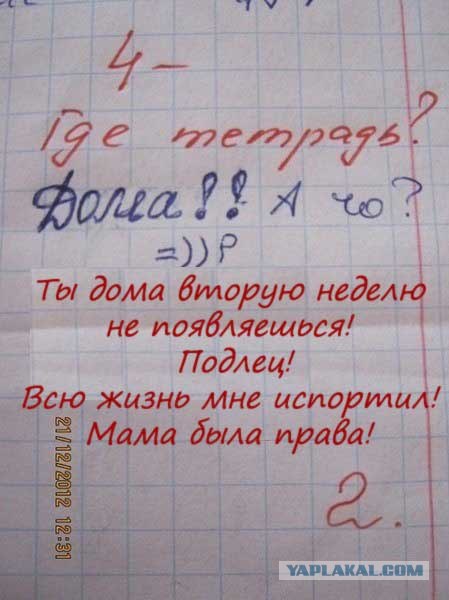 4-
Где тетрадь?
Дома!! А чо?
=))Р
Ты дома вторую неделю
не появляешься!
Подлец!
Всю жизнь мне испортил!
Мама была права!
21/12/2012 12:31
2.
YAPLAKAL.COM